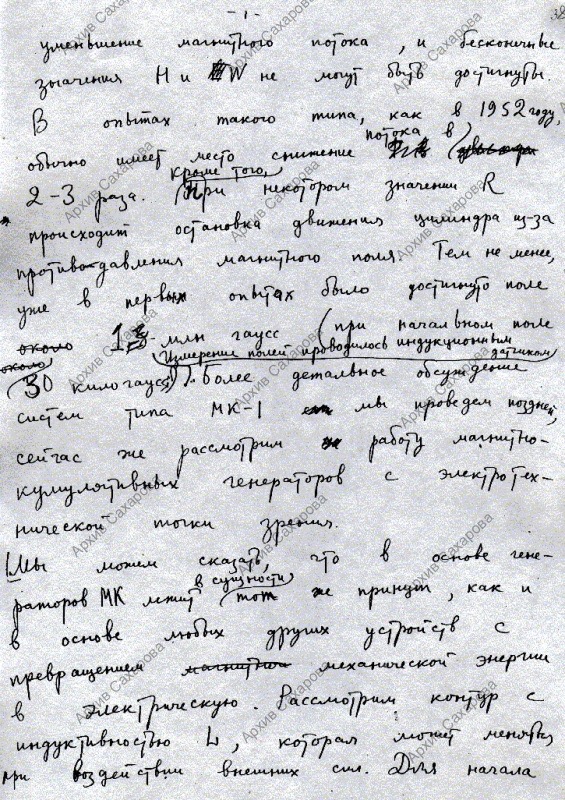 - 1 -
38
уменьшение магнитного потока, и бесконечные
значения H и W не могут быть достигнуты.
В опытах такого типа, как в 1952 году,
обычно имеет место снижение потока в
2-3 раза. Кроме того, при некотором значении R
происходит остановка движения цилиндра из-за
противодавления магнитного поля. Тем не менее,
уже в первых опытах было достигнуто поле
около 1 млн гаусс (при начальном поле
около 30 килогаусс). Измерение полей проводилось индукционным датчиком. Более детальное обсуждение
систем типа МК-1 мы проведем поздней,
сейчас же рассмотрим работу магнитно-
кумулятивных генераторов с электротех-
нической точки зрения.
Мы можем сказать, что в основе гене-
раторов МК лежит в сущности тот же принцип, как и
в основе любых других устройств с
превращением магнитной механической энергии
в электрическую. Рассмотрим контур с
индуктивностью L, которая может меняться
при воздействии внешних сил. Для начала
Архив Сахарова